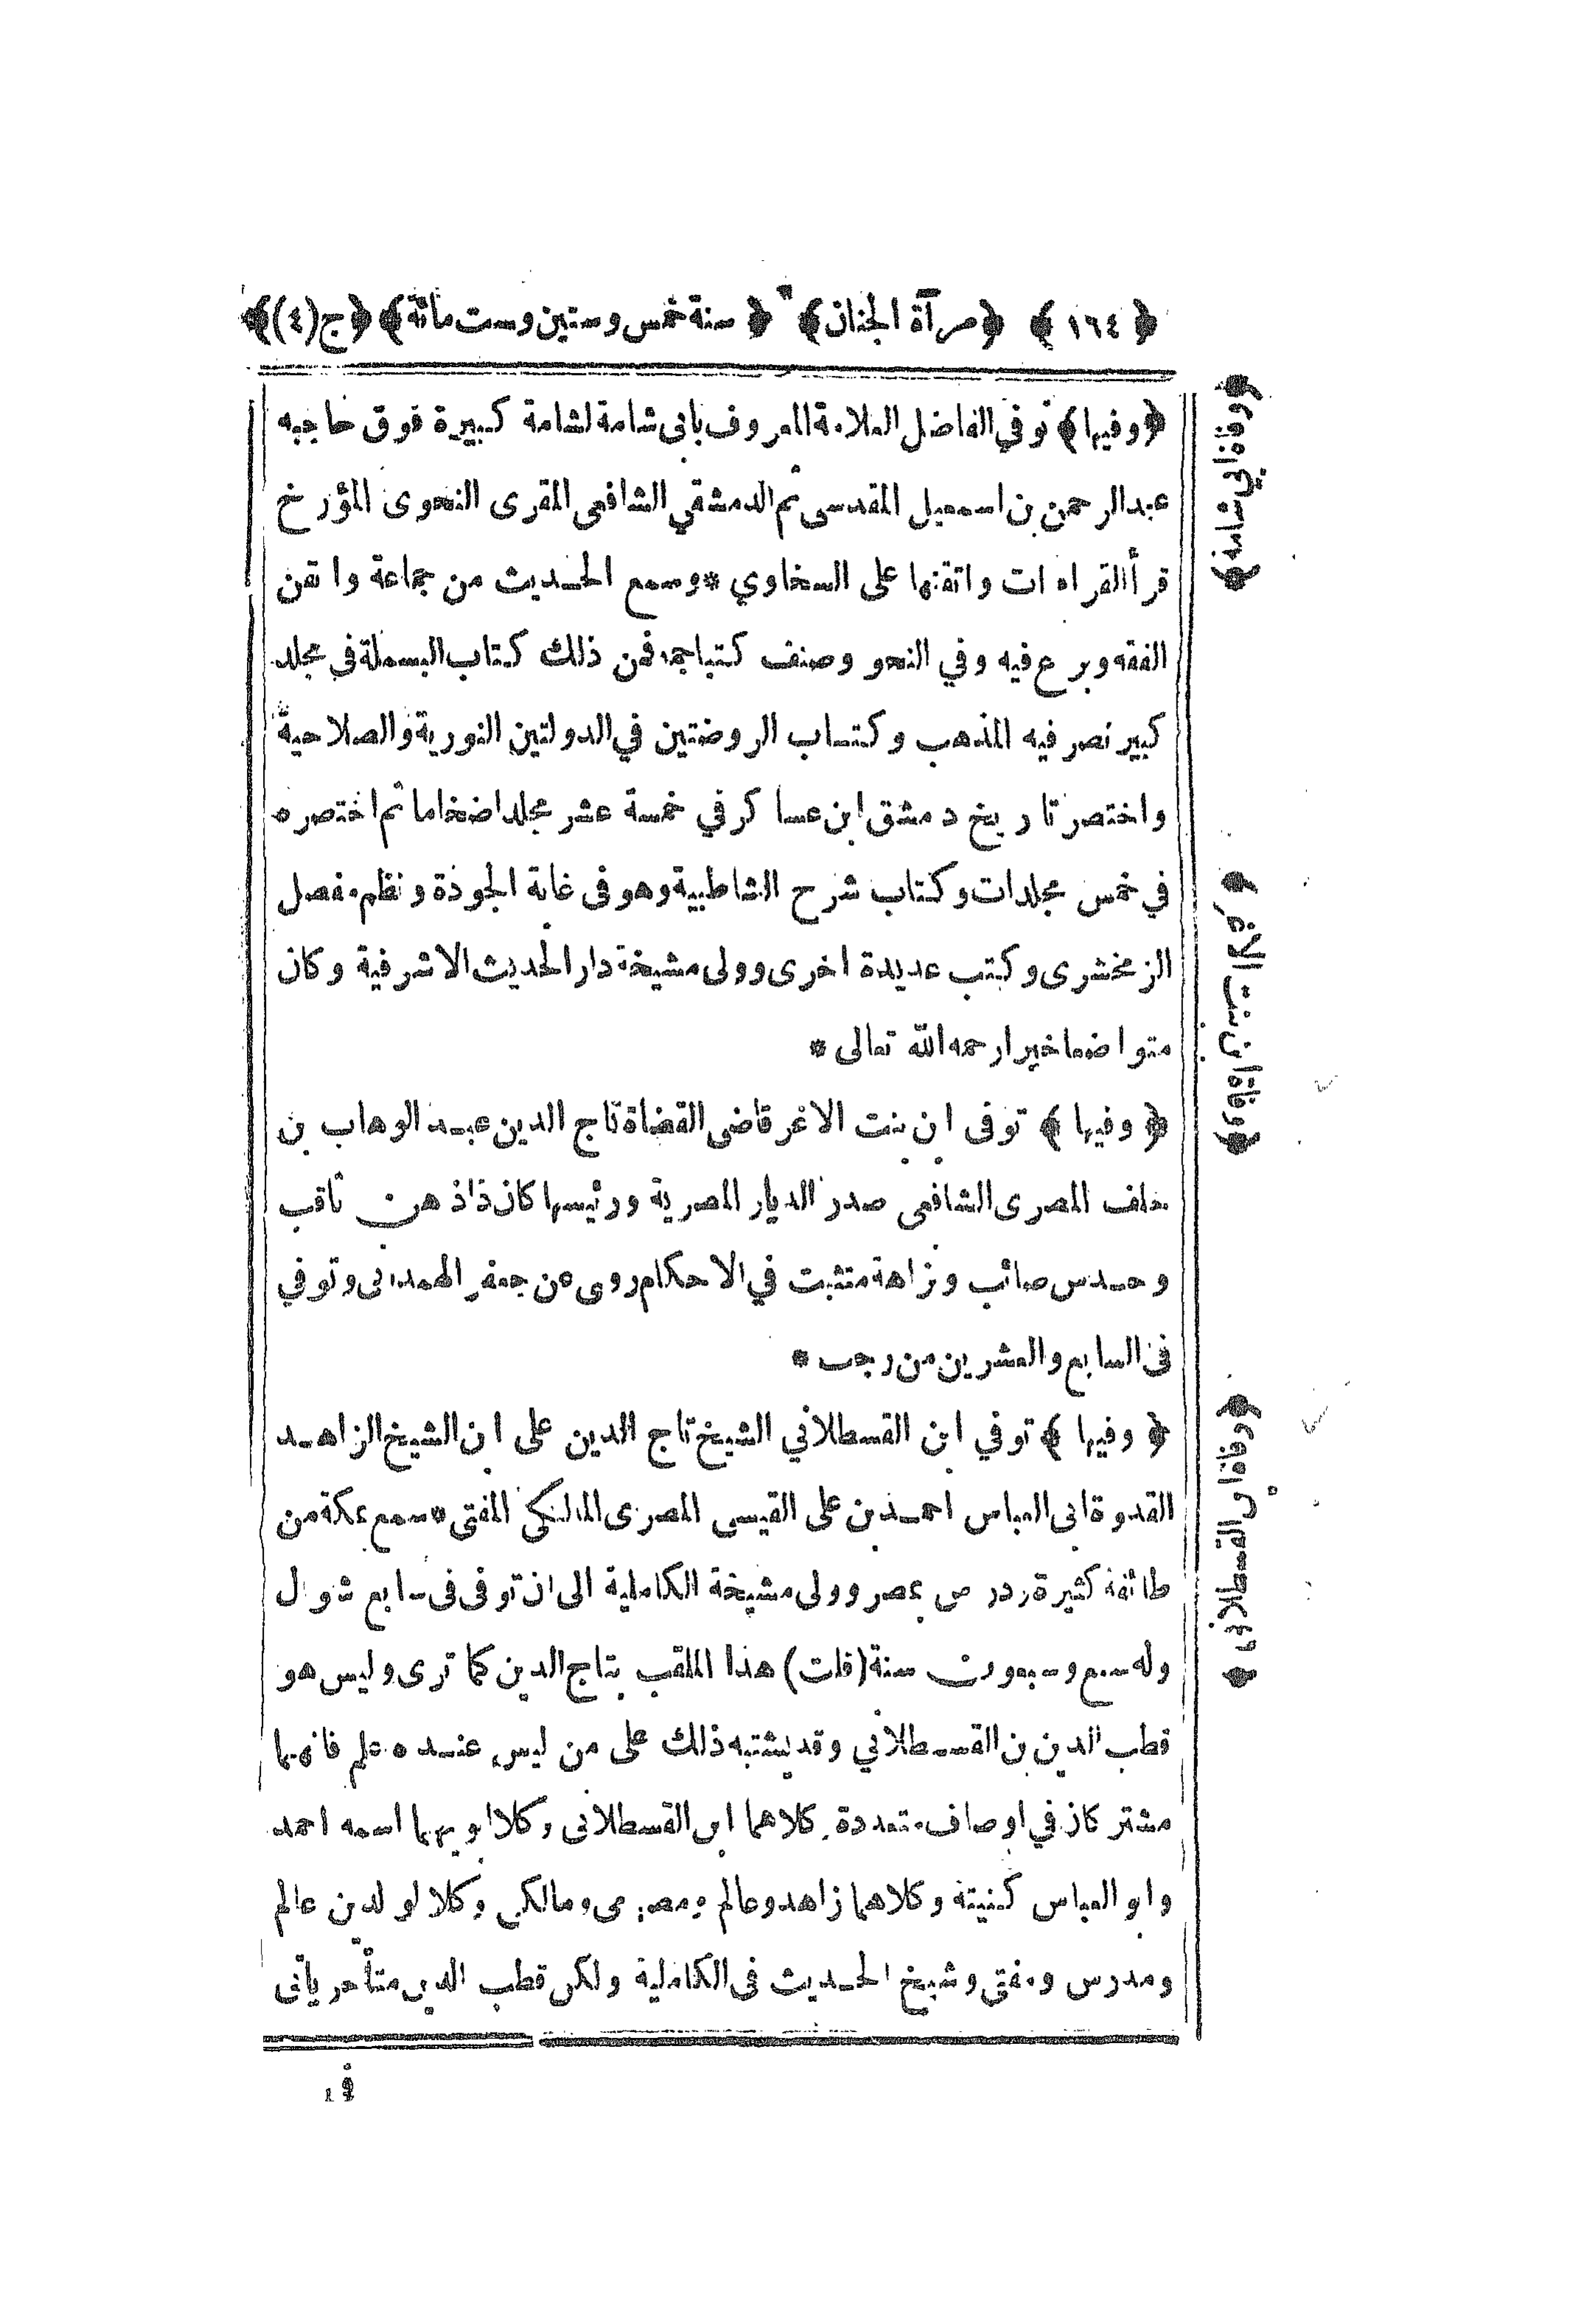 ﴿ ١٦٤ ﴾ ﴿مرآة الجنان﴾ ﴿ سنة خمس وستين وست مائة﴾ ﴿ج(٤)﴾
﴿وفيها﴾ توفي الفاضل العلامة المعروف بابى شامة لشامة كبيرة فوق حاجبه
عبد الرحمن بن اسمعيل المقدسى ثم الدمشقي الشافعى المقرى النحوى المؤرخ
قرأ القراءات واتقنها على السخاوي *وسمع الحديث من جماعة واتقن
الفقه وبرع فيه وفي النحو وصنف كتبا جمة فمن ذلك كتاب البسملة في مجلد
كبير نصر فيه المذهب وكتاب الروضتين في الدولتين النورية والصلاحية
واختصر تاريخ دمشق ابن عساكر في خمسة عشر مجلدا ضخاما ثم اختصره
في خمس مجلدات وكتاب شرح الشاطبية وهو فى غاية الجودة ونظم مفصل
الزمخشرى وكتب عديدة اخرى وولى مشيخة دار الحديث الاشرفية وكان
متواضعا خيرا رحمه الله تعالى *
﴿ وفيها ﴾ توفى ابن بنت الاغر قاضى القضاة تاج الدين عبد الوهاب بن
خلف المصرى الشافعى صدر الديار المصرية ورئيسها كان ذا ذهن ثاقب
وحدس صائب ونزاهة متثبت في الاحكام روى عن جعفر الهمدانى وتوفي
فى السابع والعشرين من رجب *
﴿ وفيها ﴾ توفي ابن القسطلاني الشيخ تاج الدين على ابن الشيخ الزاهد
القدوة ابى العباس احمد بن على القيسى المصرى المالكى المفتى *سمع بمكة من
طائفة كثيرة ودرس بمصر وولى مشيخة الكاملية الى ان توفى فى سابع شوال
وله سبع وسبعون سنة (قلت) هذا الملقب بتاج الدين كما ترى وليس هو
قطب الدين بن القسطلاني وقد يشتبه ذلك على من ليس عنده علم فانهما
مشتركان في اوصاف متعددة كلاهما ابن القسطلانى وكلا ابويهما اسمه احمد
وابو العباس كنيته وكلاهما زاهد وعالم ومصرى ومالكى وكلا لولدين عالم
ومدرس ومفتى وشيخ الحديث فى الكاملية ولكن قطب الدين متأخر يأتى
﴿وفاة ابي شامة﴾
﴿وفاة ابن بنت الاغر﴾
﴿وفاة ابن القسطلاني﴾